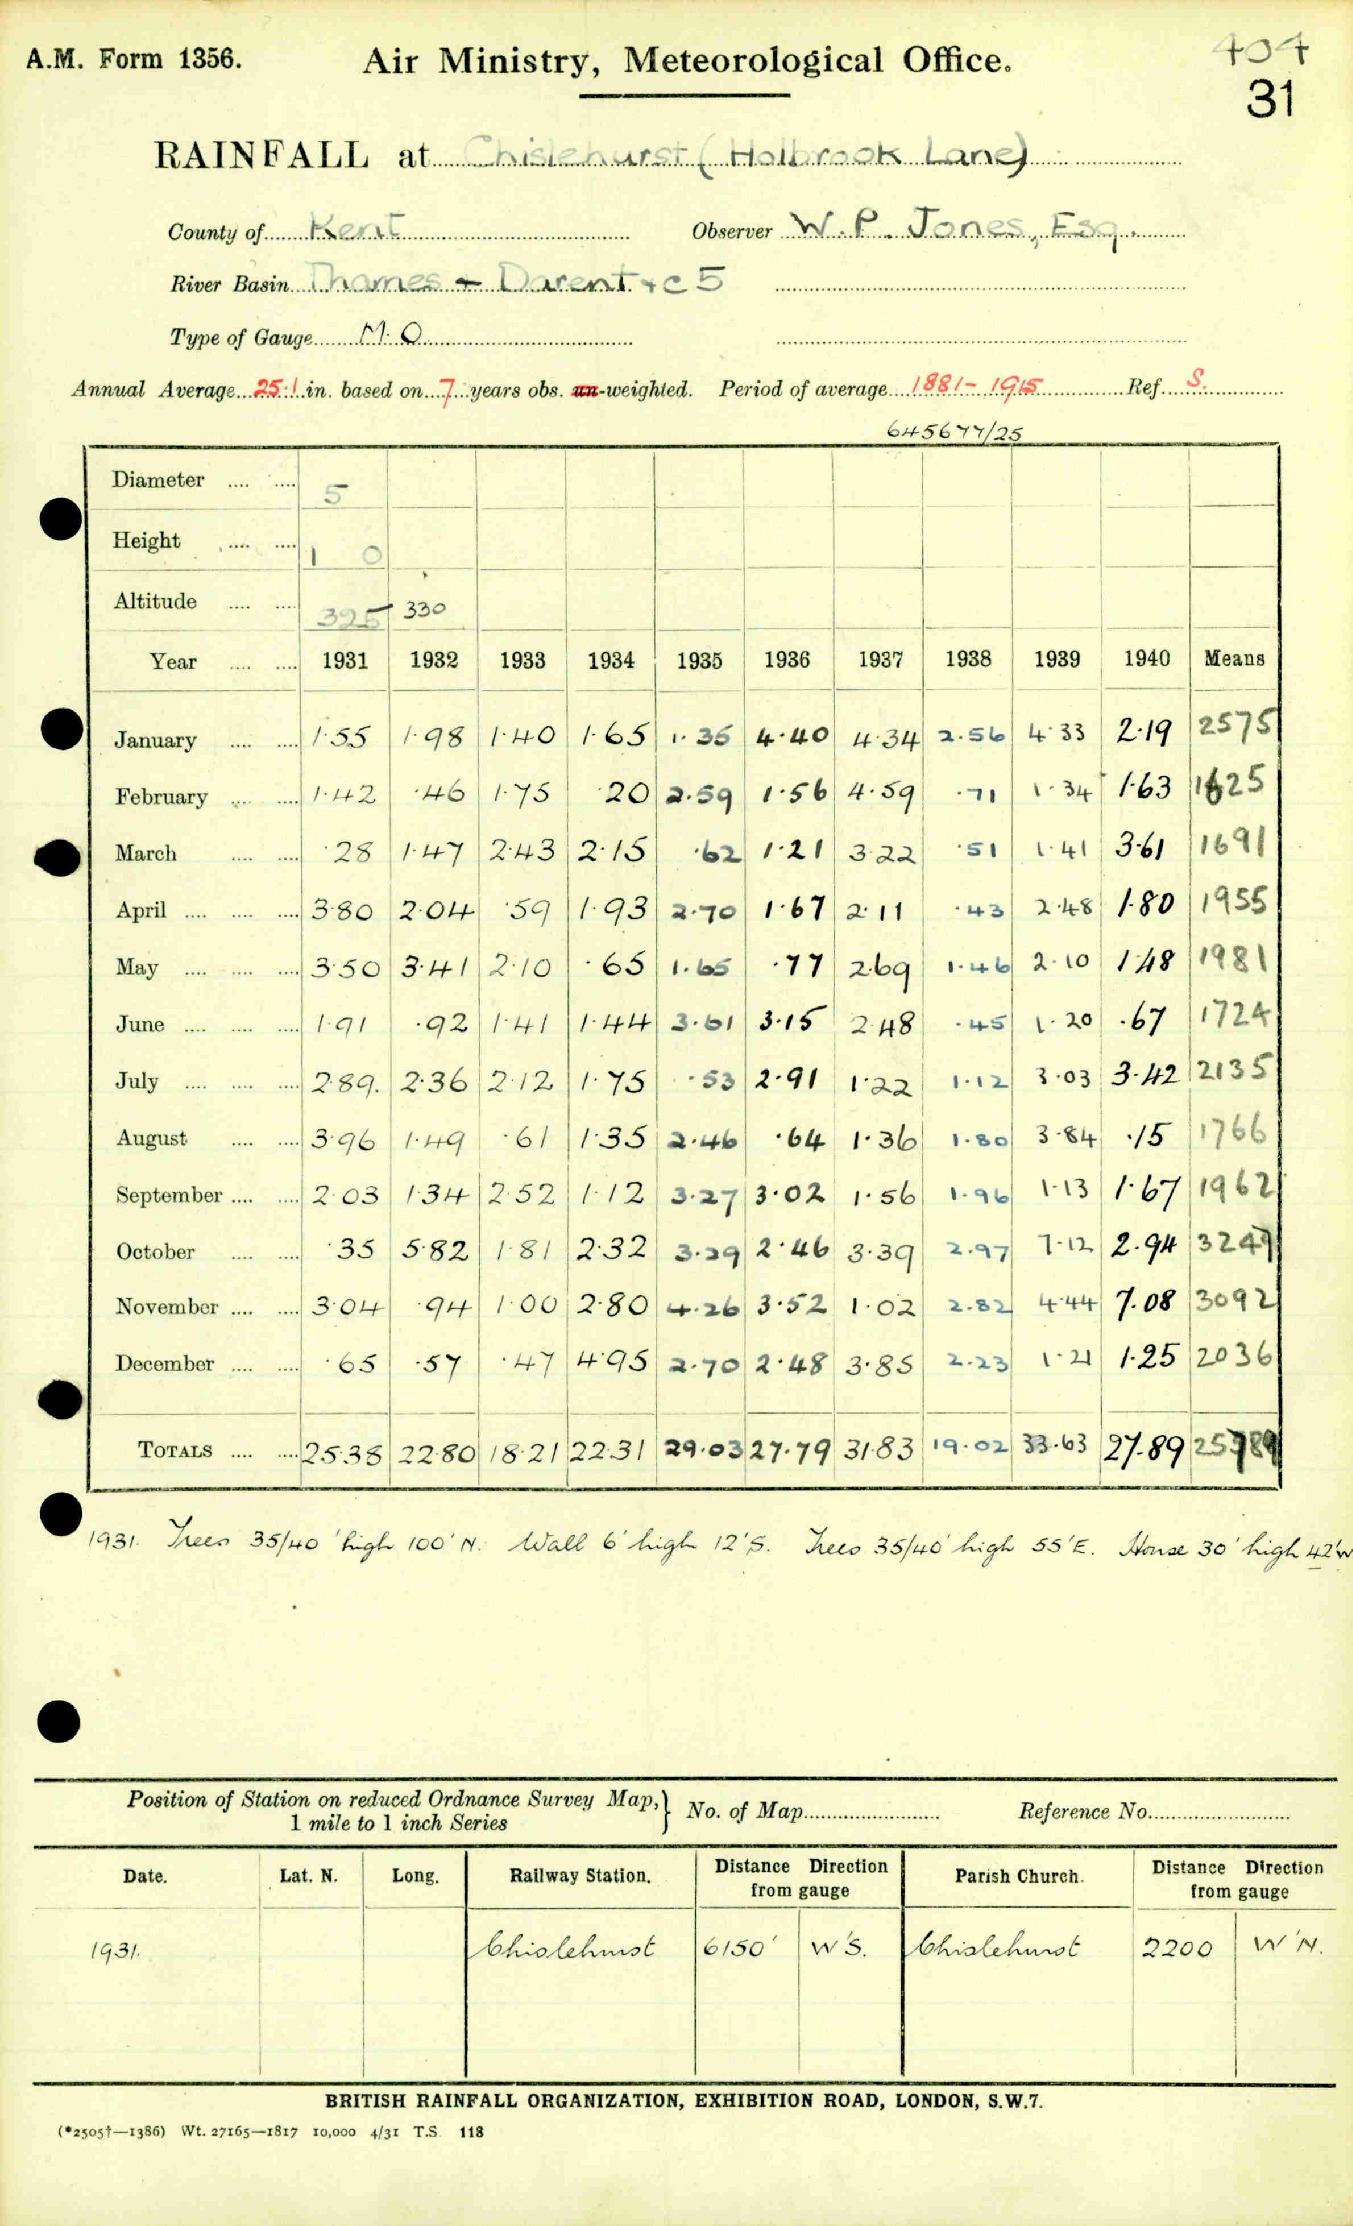 A.M. Form 1356. Air Ministry, Meteorological Office. 404
31
RAINFALL at Chislehurst (Holbrook Lane)
County of Kent Observer W. P. Jones, Esq.
River Basin Thames + Darent &c 5
Type of Gauge M.O.
Annual Average 25.1 in. based on 7 years obs. un-weighted. Period of average 1881-1915 Ref. S.
645677/25
Diameter 5
Height 1 0
Altitude 325 330
Year 1931 1932 1933 1934 1935 1936 1937 1938 1939 1940 Means
January 1.55 1.98 1.40 1.65 1.35 4.40 4.34 2.56 4.33 2.19 2575
February 1.42 .46 1.75 .20 2.59 1.56 4.59 .71 1.34 1.63 1625
March .28 1.47 2.43 2.15 .62 1.21 3.22 .51 1.41 3.61 1691
April 3.80 2.04 .59 1.93 2.70 1.67 2.11 .43 2.48 1.80 1955
May 3.50 3.41 2.10 .65 1.65 .77 2.69 1.46 2.10 1.48 1981
June 1.91 .92 1.41 1.44 3.61 3.15 2.48 .45 1.20 .67 1724
July 2.89 2.36 2.12 1.75 .53 2.91 1.22 1.12 3.03 3.42 2135
August 3.96 1.49 .61 1.35 2.46 .64 1.36 1.80 3.84 .15 1766
September 2.03 1.34 2.52 1.12 3.27 3.02 1.56 1.96 1.13 1.67 1962
October .35 5.82 1.81 2.32 3.29 2.46 3.39 2.97 7.12 2.94 3247
November 3.04 .94 1.00 2.80 4.26 3.52 1.02 2.82 4.44 7.08 3092
December .65 .57 .47 4.95 2.70 2.48 3.85 2.23 1.21 1.25 2036
TOTALS 25.38 22.80 18.21 22.31 29.03 27.79 31.83 19.02 33.63 27.89 25789
1931. Trees 35/40' high 100' N. Wall 6' high 12' S. Trees 35/40' high 55' E. House 30' high 42' W
Position of Station on reduced Ordnance Survey Map,} No. of Map Reference No.
1 mile to 1 inch Series
Date. Lat. N. Long. Railway Station. Distance Direction from gauge Parish Church. Distance Direction from gauge
1931. Chislehurst 6150' W'S. Chislehurst 2200 W'N.
BRITISH RAINFALL ORGANIZATION, EXHIBITION ROAD, LONDON, S.W.7.
(*2505†—1386) Wt. 27165—1817 10,000 4/31 T.S. 118